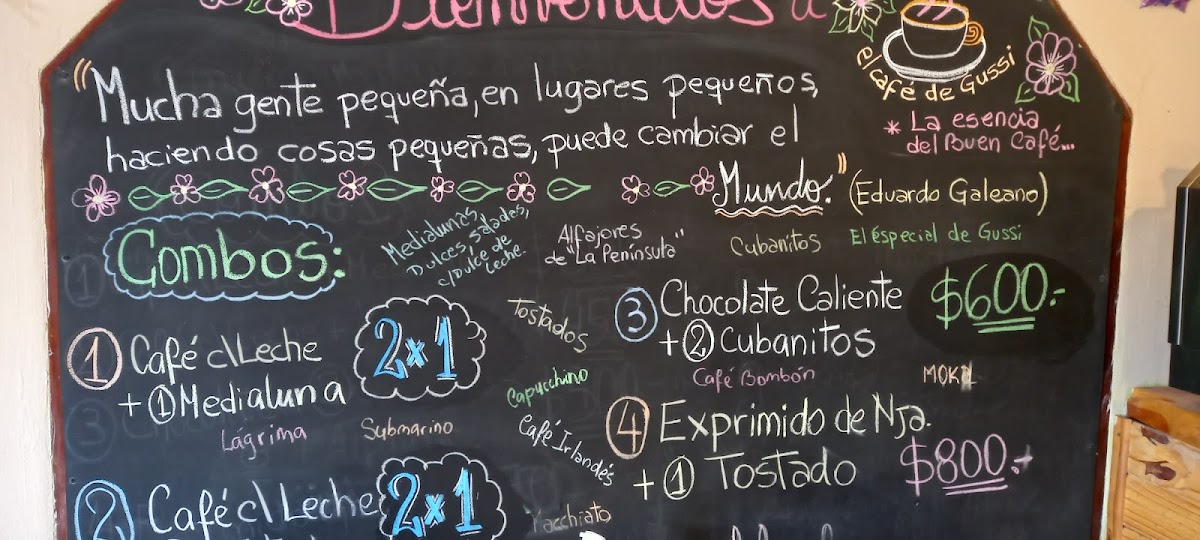 Bienvenidos a
el café de Gussi
* La esencia
del Buen Café...
"Mucha gente pequeña, en lugares pequeños,
haciendo cosas pequeñas, puede cambiar el
Mundo." (Eduardo Galeano)
Combos:
Medialunas,
Dulces, saladas,
c/Dulce de
Leche.
Alfajores
de "La Península"
Cubanitos
El éspecial de Gussi
1 Café c\Leche
+ 1 Medialuna
2x1
Lágrima
Submarino
2 Café c\Leche
2x1
Tostados
Capucchino
Café Irlandés
3 Chocolate Caliente
+ 2 Cubanitos
$600.-
Café Bombón
4 Exprimido de Nja.
+ 1 Tostado
$800.-